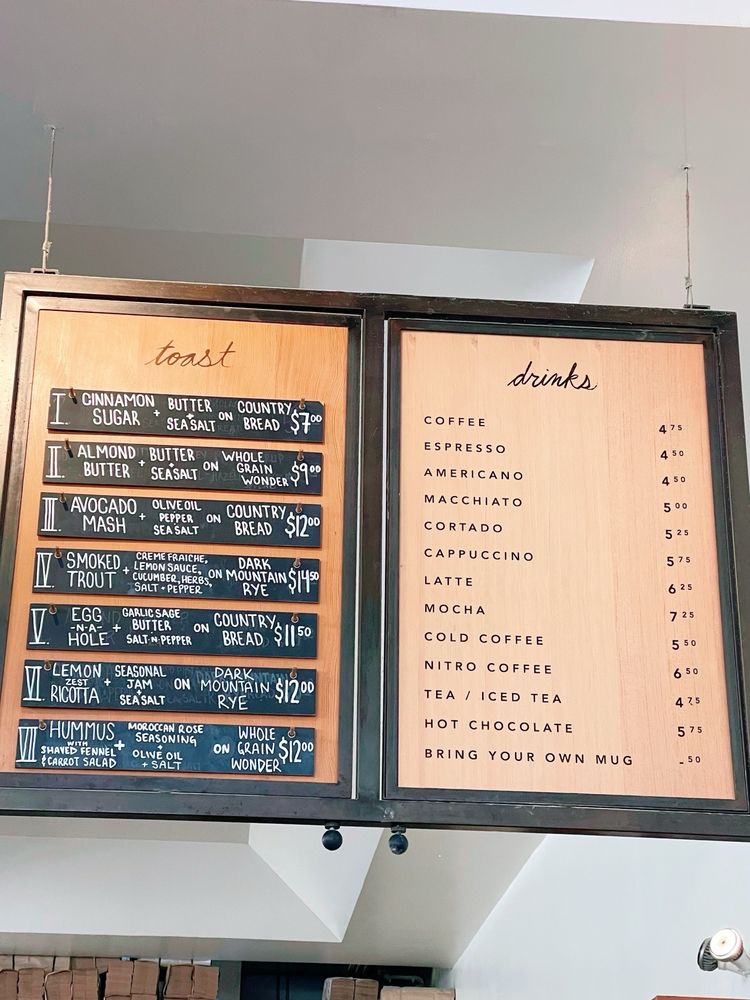 toast
I. CINNAMON SUGAR + BUTTER + SEA SALT ON COUNTRY BREAD $7⁰⁰
II. ALMOND BUTTER + BUTTER + SEA SALT ON WHOLE GRAIN WONDER $9⁰⁰
III. AVOCADO MASH + OLIVE OIL PEPPER SEA SALT ON COUNTRY BREAD $12⁰⁰
IV. SMOKED TROUT + CRÈME FRAICHE, LEMON SAUCE, CUCUMBER, HERBS, SALT + PEPPER ON DARK MOUNTAIN RYE $14⁵⁰
V. EGG -N-A- HOLE + GARLIC SAGE BUTTER SALT N PEPPER ON COUNTRY BREAD $11⁵⁰
VI. LEMON ZEST RICOTTA + SEASONAL JAM + SEA SALT ON DARK MOUNTAIN RYE $12⁰⁰
VII HUMMUS WITH SHAVED FENNEL & CARROT SALAD + MOROCCAN ROSE SEASONING + OLIVE OIL + SALT ON WHOLE GRAIN WONDER $12⁰⁰
drinks
COFFEE 4⁷⁵
ESPRESSO 4⁵⁰
AMERICANO 4⁵⁰
MACCHIATO 5⁰⁰
CORTADO 5²⁵
CAPPUCCINO 5⁷⁵
LATTE 6²⁵
MOCHA 7²⁵
COLD COFFEE 5⁵⁰
NITRO COFFEE 6⁵⁰
TEA / ICED TEA 4⁷⁵
HOT CHOCOLATE 5⁷⁵
BRING YOUR OWN MUG -⁵⁰